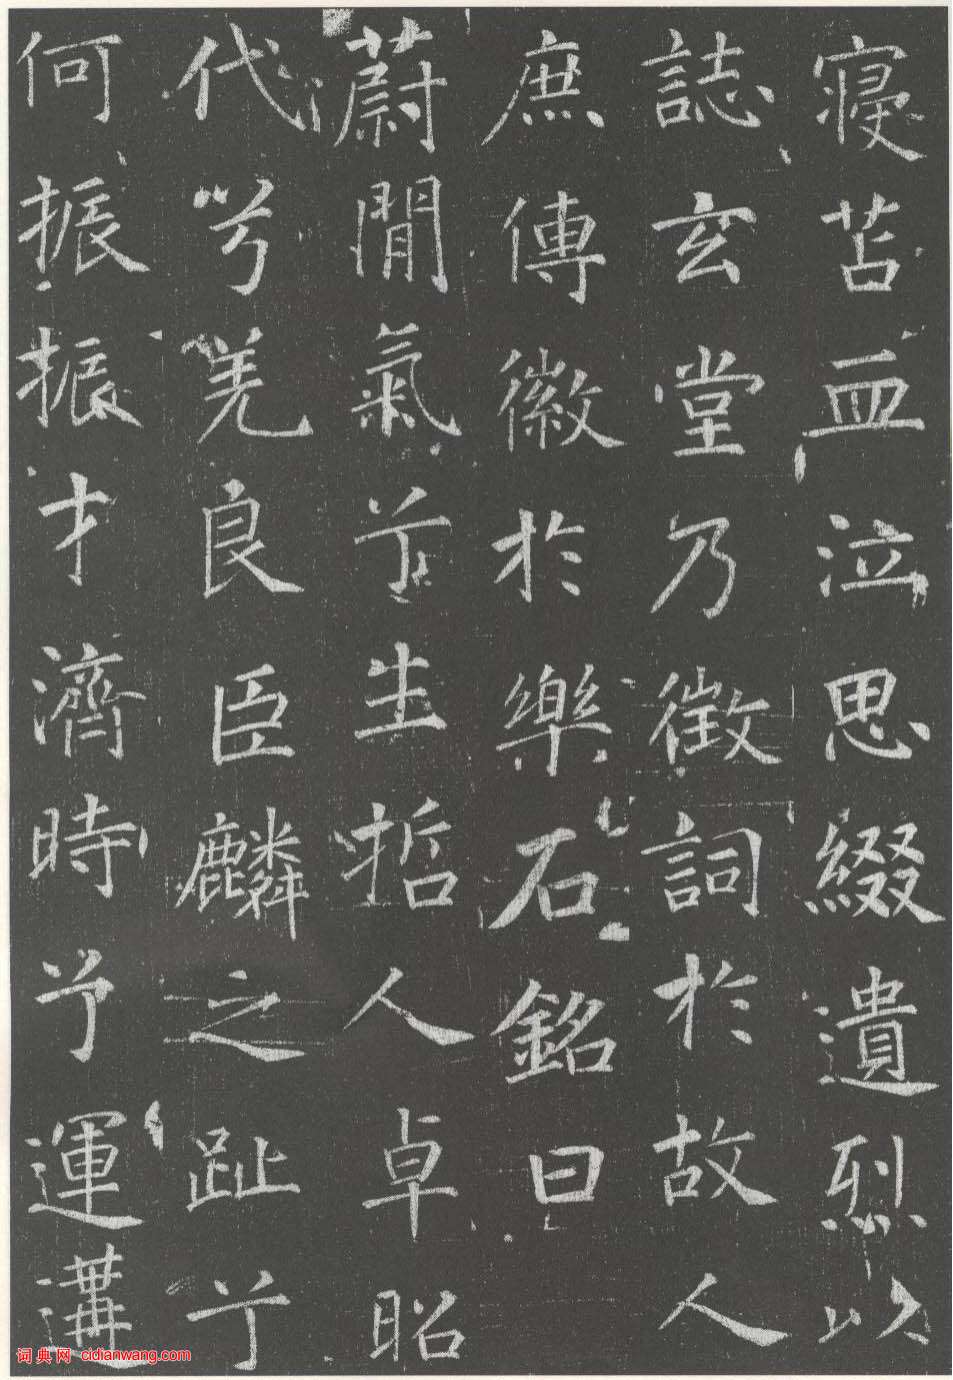 寝苫血泣思綴遺烈以
誌玄堂乃徵詞於故人
庶傳徽於樂石銘曰
蔚間氣兮生哲人卓昭
代兮羌良臣麟之趾兮
何振振才濟時兮運遘
词典网 cidianwang.com